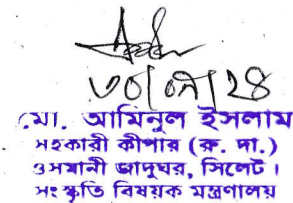 ৩০/০৭/২৪
মো. আমিনুল ইসলাম
সহকারী কীপার (রু. দা.)
ওসমানী জাদুঘর, সিলেট।
সংস্কৃতি বিষয়ক মন্ত্রণালয়